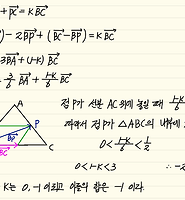 + p⃗c = K B⃗C
) - 2B⃗P + (B⃗C - B⃗P) = K B⃗C
3B⃗A + (1-K) B⃗C
3/6 B⃗A + 1-K/6 B⃗C
A
P
BP
BC
C
점 P가 선분 AC 위에 놓일 때 1-K/6
따라서 점 P가 △ABC의 내부에
0 < 1-K/6 < 1/2
0 < 1-K < 3 ∴ -2
K는 0, -1 이므로 이들의 합은 -1 이다.